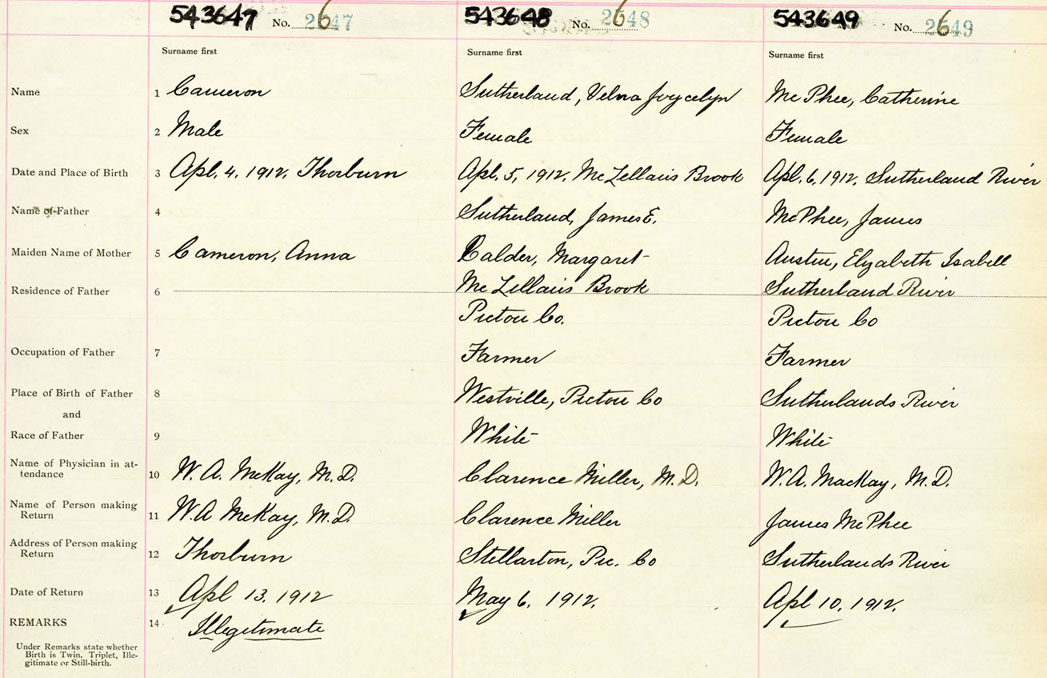 543647 No. 2647 543648 No. 2648 543649 No. 2649
Surname first Surname first Surname first
Name 1 Cameron Sutherland, Velma Joycelyn McPhee, Catherine
Sex 2 Male Female Female
Date and Place of Birth 3 Apl. 4. 1912. Thorburn Apl. 5, 1912. McLellans Brook Apl. 6, 1912. Sutherland River
Name of Father 4 Sutherland, James E. McPhee, James
Maiden Name of Mother 5 Cameron, Anna Calder, Margaret Austin, Elizabeth Isabell
Residence of Father 6 McLellans Brook Sutherland River
Pictou Co. Pictou Co
Occupation of Father 7 Farmer Farmer
Place of Birth of Father 8 Westville, Pictou Co Sutherlands River
and
Race of Father 9 White White
Name of Physician in at-
tendance 10 W. A. McKay, M.D. Clarence Miller, M.D. W.A. MacKay, M.D.
Name of Person making
Return 11 W.A McKay, M.D. Clarence Miller James McPhee
Address of Person making
Return 12 Thorburn Stellarton, Pic. Co Sutherlands River
Date of Return 13 Apl 13. 1912 May 6. 1912. Apl 10. 1912.
REMARKS 14 Illegitimate
Under Remarks state whether
Birth is Twin, Triplet, Ille-
gitimate or Still-birth.